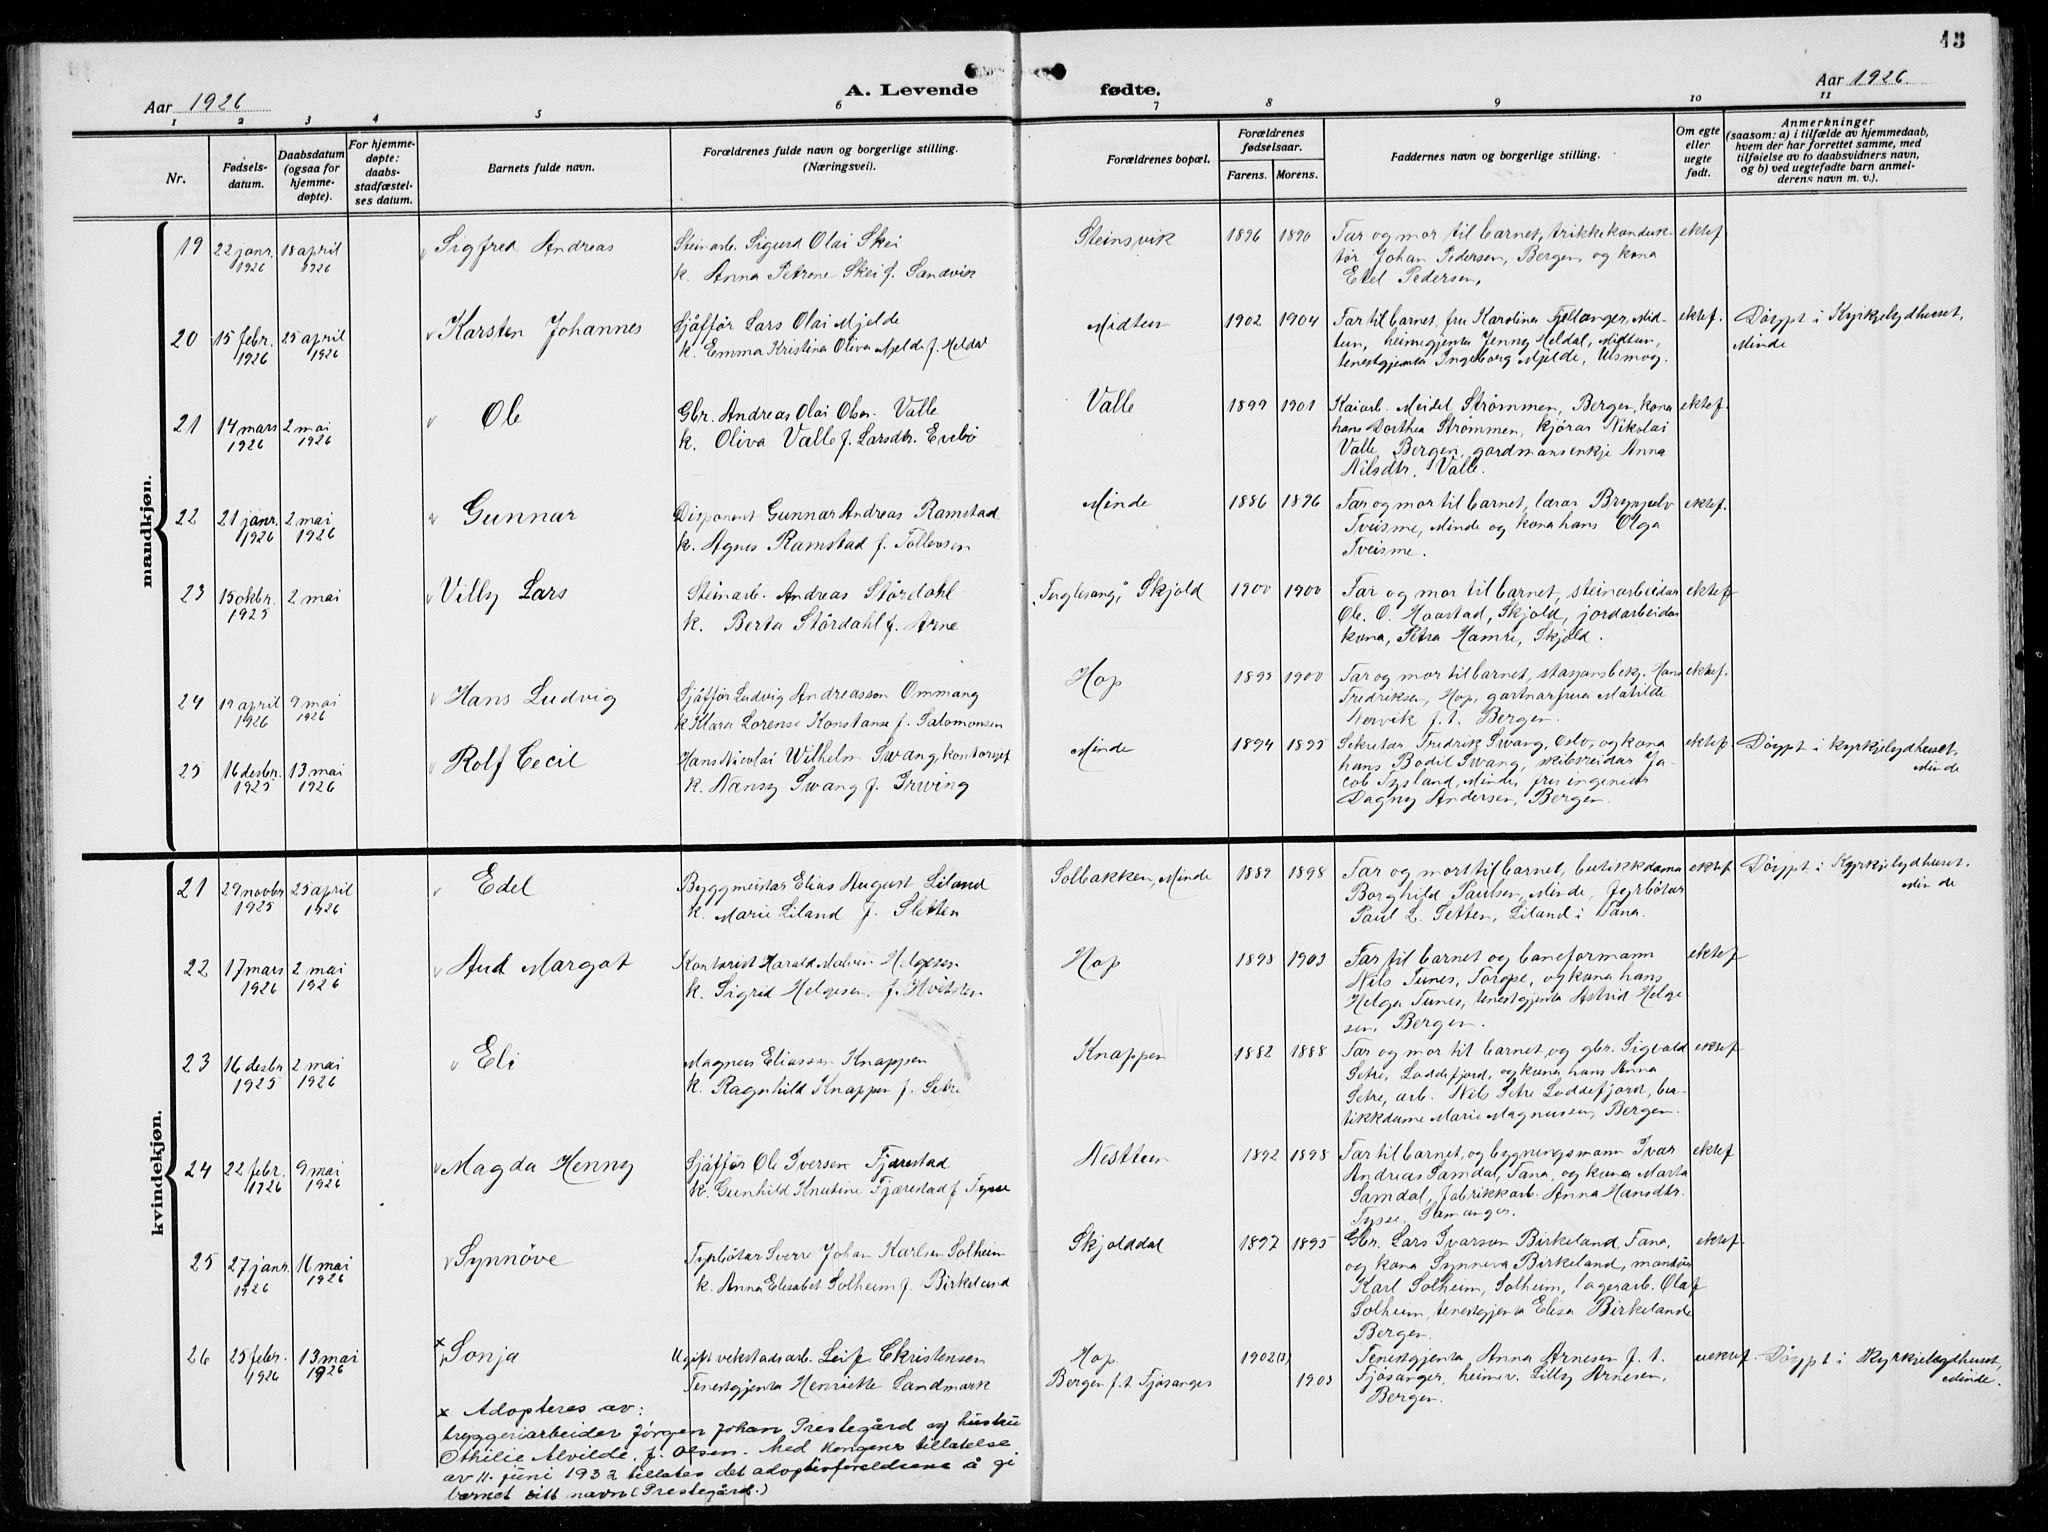 13
A. Levende fødte.
Aar 1926
Aar 1926
1 2 3 4 5 6 7 8 9 10 11
Nr.
Fødsels-
datum.
Daabsdatum
(ogsaa for
hjemme-
døpte).
For hjemme-
døpte:
daabs-
stadfæstel-
ses datum.
Barnets fulde navn.
Forældrenes fulde navn og borgerlige stilling.
(Næringsvei).
Forældrenes bopæl.
Forældrenes
fødselsaar.
Farens. Morens.
Faddernes navn og borgerlige stilling.
Om egte
eller
uegte
født.
Anmerkninger
(saasom: a) i tilfælde av hjemmedaab,
hvem der har forrettet samme, med
tilføielse av to daabsvidners navn,
og b) ved uegtefødte barn anmel-
derens navn m. v.).
mandkjøn.
19
22 janr.
1926
18 april
1926
Sigfred Andreas
Steinarb. Sigurd Olai Skei
k. Anna Petrene Skei f. Sandvik
Steinsvik
1896 1890
Far og mor til barnet, trikkekonduk-
tør Johan Pedersen, Bergen, og kona
Etel Pedersen,
ektef.
20
15 febr.
1926
25 april
1926
Karsten Johannes
Sjåffør Lars Olai Mjelde
k. Emma Kristina Oliva Mjelde f. Meldal
Midtun
1902 1904
Far til barnet, fru Karolina Fjeldanger, Mid-
tun, heimegjenta Jenny Meldal, Midtun,
tenestgjenta Ingeborg Mjelde, Ulsmog.
ektef.
Døypt i Kyrkjelydhuset,
Minde
21
14 mars
1926
2 mai
1926
Ole
Gbr. Andreas Olai Olsn. Valle
k. Oliva Valle f. Larsdtr. Evebø
Valle
1899 1901
Kaiarb. Meidel Strømmen, Bergen, kona
hans Dorthea Strømmen, kjørar Nikolai
Valle, Bergen, gardmansenkje Anna
Nilsdtr. Valle.
ektef.
22
21 janr.
1926
2 mai
1926
Gunnar
Disponent Gunnar Andreas Ramstad
k. Agnes Ramstad f. Tollevsen
Minde
1886 1896
Far og mor til barnet, lærar Brynjulv
Tveisme, Minde og kona hans Olga
Tveisme.
ektef.
23
15 oktbr.
1925
2 mai
Villy Lars
Steinarb. Andreas Stördahl
k. Berta Stördahl f. Arne
"Fuglesang," Skjold
1900 1900
Far og mor til barnet, steinarbeidar
Ole O. Haastad, Skjold, jordarbeidar
kona, Petra Hamre, Skjold.
ektef.
24
19 april
1926
9 mai
1926
Hans Ludvig
Sjåffør Ludvig Andreasson Ommang
k. Klara Lorense Konstanse f. Salomonsen
Hop
1895 1900
Far og mor til barnet, stasjonsbetj. Hans
Fredriksen, Hop, gartnarfrua Matilde
Nervik f. t. Bergen.
ektef.
25
16 desbr.
1925
13 mai
1926
Rolf Cecil
Hans Nicolai Wilhelm Swang kontorsjef
k. Nansy Swang f. Irwing
Minde
1894 1895
Sekretær Fredrik Swang, Oslo, og kona
hans Bodil Swang, skibsreidar Ja-
cob Tysland, Minde, fru ingeniør
Dagny Andersen, Bergen.
ektef.
Døypt i kyrkjelydhuset,
Minde
kvindekjøn.
21
29 novbr.
1925
25 april
1926
Edel
Byggmeistar Elias August Liland
k. Marie Liland f. Sletten
Solbakken, Minde
1889 1898
Far og mor til barnet, butikkdama
Borghild Paulsen, Minde, fyrbøtar
Paul L. Setten, Liland i Fana.
ektef.
Døypt i Kyrkjelydhuset.
Minde
22
17 mars
1926
2 mai
1926
Aud Margot
Kontorist Harald Malvin Helgesen
k. Sigrid Helgesen f. Hvitsten
Hop
1898 1903
Far til barnet og baneformann
Nils Tunes, Torpe, og kona hans
Helga Tunes, tenestgjenta Astrid Helge-
sen, Bergen.
ektef
23
16 desbr.
1925
2 mai
1926
Eli
Magnus Eliassen Knappen
k. Ragnhild Knappen f. Setre
Knappen
1882 1888
Far og mor til barnet, og gbr. Sigvald
Setre, Loddefjord, og kona hans Anna
Setre, arb. Nils Setre Loddefjord, bu-
tikkdame Marie Magnussen, Bergen.
ektef
24
22 febr.
1926
9 mai
1926
Magda Henny
Sjåffør Ole Iversen Fjærestad
k. Gunhild Knutine Fjærestad f. Tysse
Nesttun
1892 1898
Far til barnet, og bygningsmann Ivar
Andreas Samdal, Fana, og kona Marta
Samdal, fabrikkarb. Anna Hansdtr.
Tysse, Samanger.
ektef
25
27 janr.
1926
16 mai
1926
Synnöve
Fyrbøtar Sverre Johan Karlsen Solheim
k. Anna Elisabet Solheim f. Birkeland
Skjolddal
1897 1895
Gbr. Lars Ivarson Birkeland, Fana,
og kona Synneva Birkeland, montör
Karl Solheim, Solheim, lagerarb. Olaf
Solheim, tenestgjenta Elisa Birkelande
Bergen.
ektef.
26
25 febr.
1926
13 mai
1926
x Sonja
Ugift vekstadsarb. Leif Christensen
Tenestgjenta Henriette Landmark
Hop
Bergen f. t. Fjøsanger
1902(3)
1903
Tenestgjenta Anna Arnesen f. t.
Fjøsanger, heimev. Lilly Arnesen,
Bergen.
uektef.
Døypt i Kyrkjelydhuset,
Minde.
x Adopteres av:
bryggeriarbeider Jörgen Johan Prestegård og hustru
Othilie Alvilde, f. Olsen. Med Kongens tillatelse
av 11. juni 1932 tillates det adoptivforeldrene å gi
barnet sitt navn (Prestegård.)